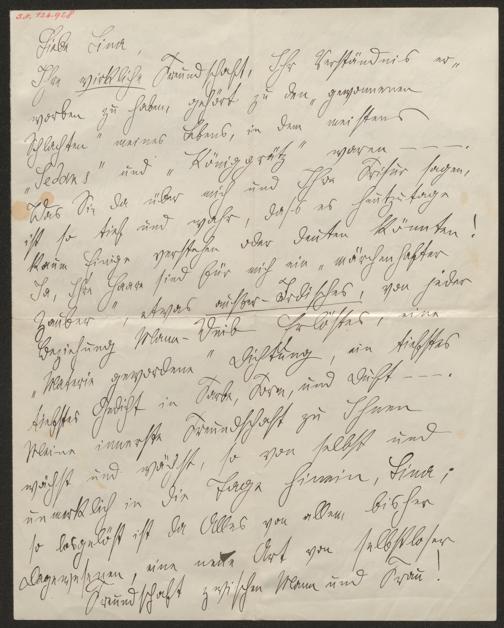 J.N. 124.928
Liebe Lina,
Ihre wirkliche Freundschaft, Ihr Verständnis er-
worben zu haben, gehört zu den „gewonnenen
Schlachten“ meines Lebens, in dem meistens
„Sedans“ und „Königgrätz“ waren — — —.
Was Sie da über mich und Ihre Frisur sagen,
ist so tief und wahr, dass es heutzutage
kaum Einige verstehen oder deuten könnten!
Ja, Ihre Haare sind für mich ein „märchenhafter
Zauber“, etwas ausser-Irdisches, von jeder
Beziehung Mann-Weib Erlöstes, eine
„Materie gewordene“ Dichtung, ein tiefstes
tiefstes Gedicht in Farbe, Form, und Duft — — —.
Meine innerste Freundschaft zu Ihnen
wächst und wächst, so von selbst und
unmerklich in die Tage hinein, Lina;
so losgelöst ist da Alles von allem bisher
Dagewesenen, eine neue Art von selbstloser
Freundschaft zwischen Mann und Frau!